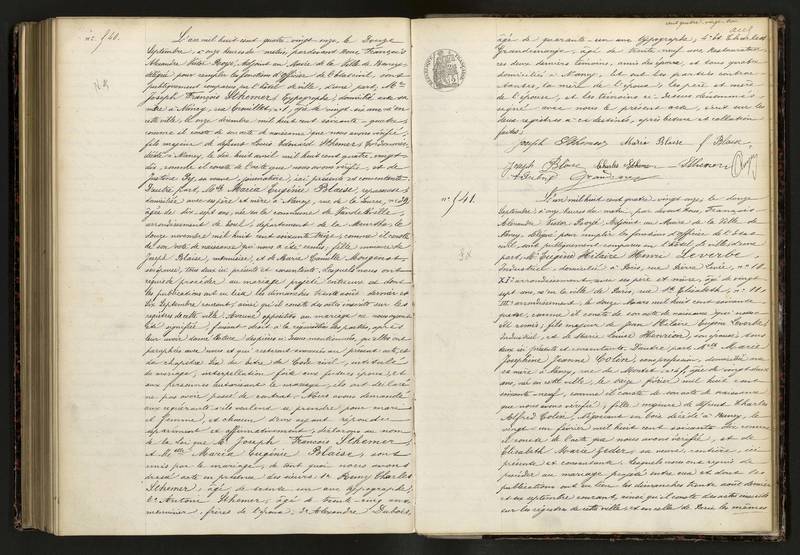 n.º 540.
L'an mil huit cent quatre-vingt-onze, le douze
Septembre, à onze heures du matin, pardevant Nous François
Alexandre Victor adjoint au Maire de la Ville de Nancy,
délégué pour remplir les fonctions d'Officier de l'état civil, sont
publiquement comparus en l'hôtel de ville, d'une part, M.
Joseph François Sthemer, typographe, domicilié avec sa
mère à Nancy, rue âgé de vingt-six ans, né en
cette ville le onze décembre mil huit cent soixante-quatre,
comme il conste de son acte de naissance que nous avons vérifié,
fils majeur de défunt Louis Edouard Sthemer,
décédé à Nancy, le dix-huit avril mil huit cent quatre-vingt-
comme il conste de l'acte que nous avons vérifié, et de
sa veuve, journalière, ici présente et consentante.
D'autre part, M.elle Maria Eugénie Blaise, repasseuse,
domiciliée avec ses père et mère à Nancy, rue
âgée de dix-sept ans, née en la commune de Vandeléville,
arrondissement de Toul, département de la Meurthe, le
douze novembre mil huit cent soixante-treize, comme il conste
de son acte de naissance qui nous a été remis; fille mineure de
Joseph Blaise, menuisier, et de Marie Camille Mougenot,
tous deux ici présents et consentants. Lesquels nous ont
requis de procéder au mariage projeté entre eux et dont
les publications ont eu lieu les dimanches trente août dernier et
six Septembre courant, ainsi qu'il conste des actes inscrits sur les
registres de cette ville. Aucune opposition au mariage ne nous ayant
été signifiée, faisant droit à la réquisition des parties, après
leur avoir donné lecture des pièces ci-dessus mentionnées,
paraphées avec nous et qui resteront annexées au présent acte, et
du chapitre six du titre du Code civil, intitulé
du mariage, interpellation faite aux futurs époux, et
aux personnes autorisant le mariage, ils ont déclaré
ne pas avoir passé de contrat. Nous avons demandé
aux requérants s'ils veulent se prendre pour mari
et femme, et chacun d'eux ayant répondu
séparément et affirmativement, déclarons au nom
de la Loi que M. Joseph François Sthemer,
et M.elle Maria Eugénie Blaise, sont
unis par le mariage, de tout quoi nous avons
dressé acte en présence des sieurs 1.º Remy Charles
Sthemer, âgé de trente-un ans, typographe,
2.º Antoine Sthemer, âgé de trente-cinq ans,
menuisier, frères de l'époux, 3.º Alexandre Dubois,
cent quatre-vingt-
âgé de quarante-un ans, typographe, 4.º et Charles
Grandemange, âgé de trente-neuf ans, restaurateur,
ces deux derniers témoins, amis des époux, et tous quatre
domiciliés à Nancy, et ont les parties contrac-
tantes, la mère de l'époux, les père et mère
de l'épouse, et les témoins ci-dessus dénommés,
signé avec nous le présent acte, écrit sur les
deux registres à ce destinés, après lecture et collation
faites.
Joseph Sthemer Maria Blaise
Joseph Blaise Charles Sthemer Sthemer
n.º 541.
L'an mil huit cent quatre-vingt-onze, le douze
Septembre, à onze heures du matin, par devant Nous, François
Alexandre Victor adjoint au Maire de la Ville de
Nancy, délégué pour remplir les fonctions d'Officier de l'Etat
civil, sont publiquement comparus en l'hôtel de ville, d'une
part, M. Eugène Hilaire Henri Leverbe,
Industriel, domicilié à Paris, rue n.º 18,
XI.e arrondissement, avec ses père et mère, âgé de vingt-
sept ans, né en la ville de Paris, rue S.te Elisabeth, n.º 11,
III.e arrondissement, le douze Mars mil huit cent soixante-
quatre, comme il conste de son acte de naissance qui nous a
été remis; fils majeur de Jean Hilaire Eugène Leverbe,
Industriel, et de Marie Louise Henrion, son épouse, tous
deux ici présents et consentants. D'autre part, M.elle Marie
Joséphine Jeanne Colin, sans profession, domiciliée avec
sa mère à Nancy, rue âgée de vingt-deux
ans, née en cette ville, le seize février mil huit cent
soixante-neuf, comme il conste de son acte de naissance
que nous avons vérifié; fille majeure de défunt Charles
Alfred Colin, négociant en bois, décédé à Nancy, le
vingt-un février mil huit cent soixante comme
il conste de l'acte que nous avons vérifié, et de
Elisabeth Marie Geder, sa veuve, rentière, ici
présente et consentante. Lesquels nous ont requis de
procéder au mariage projeté entre eux et dont les
publications ont eu lieu les dimanches trente août dernier
et six septembre courant, ainsi qu'il conste des actes inscrits
sur les registres de cette ville et en celle de Paris les mêmes